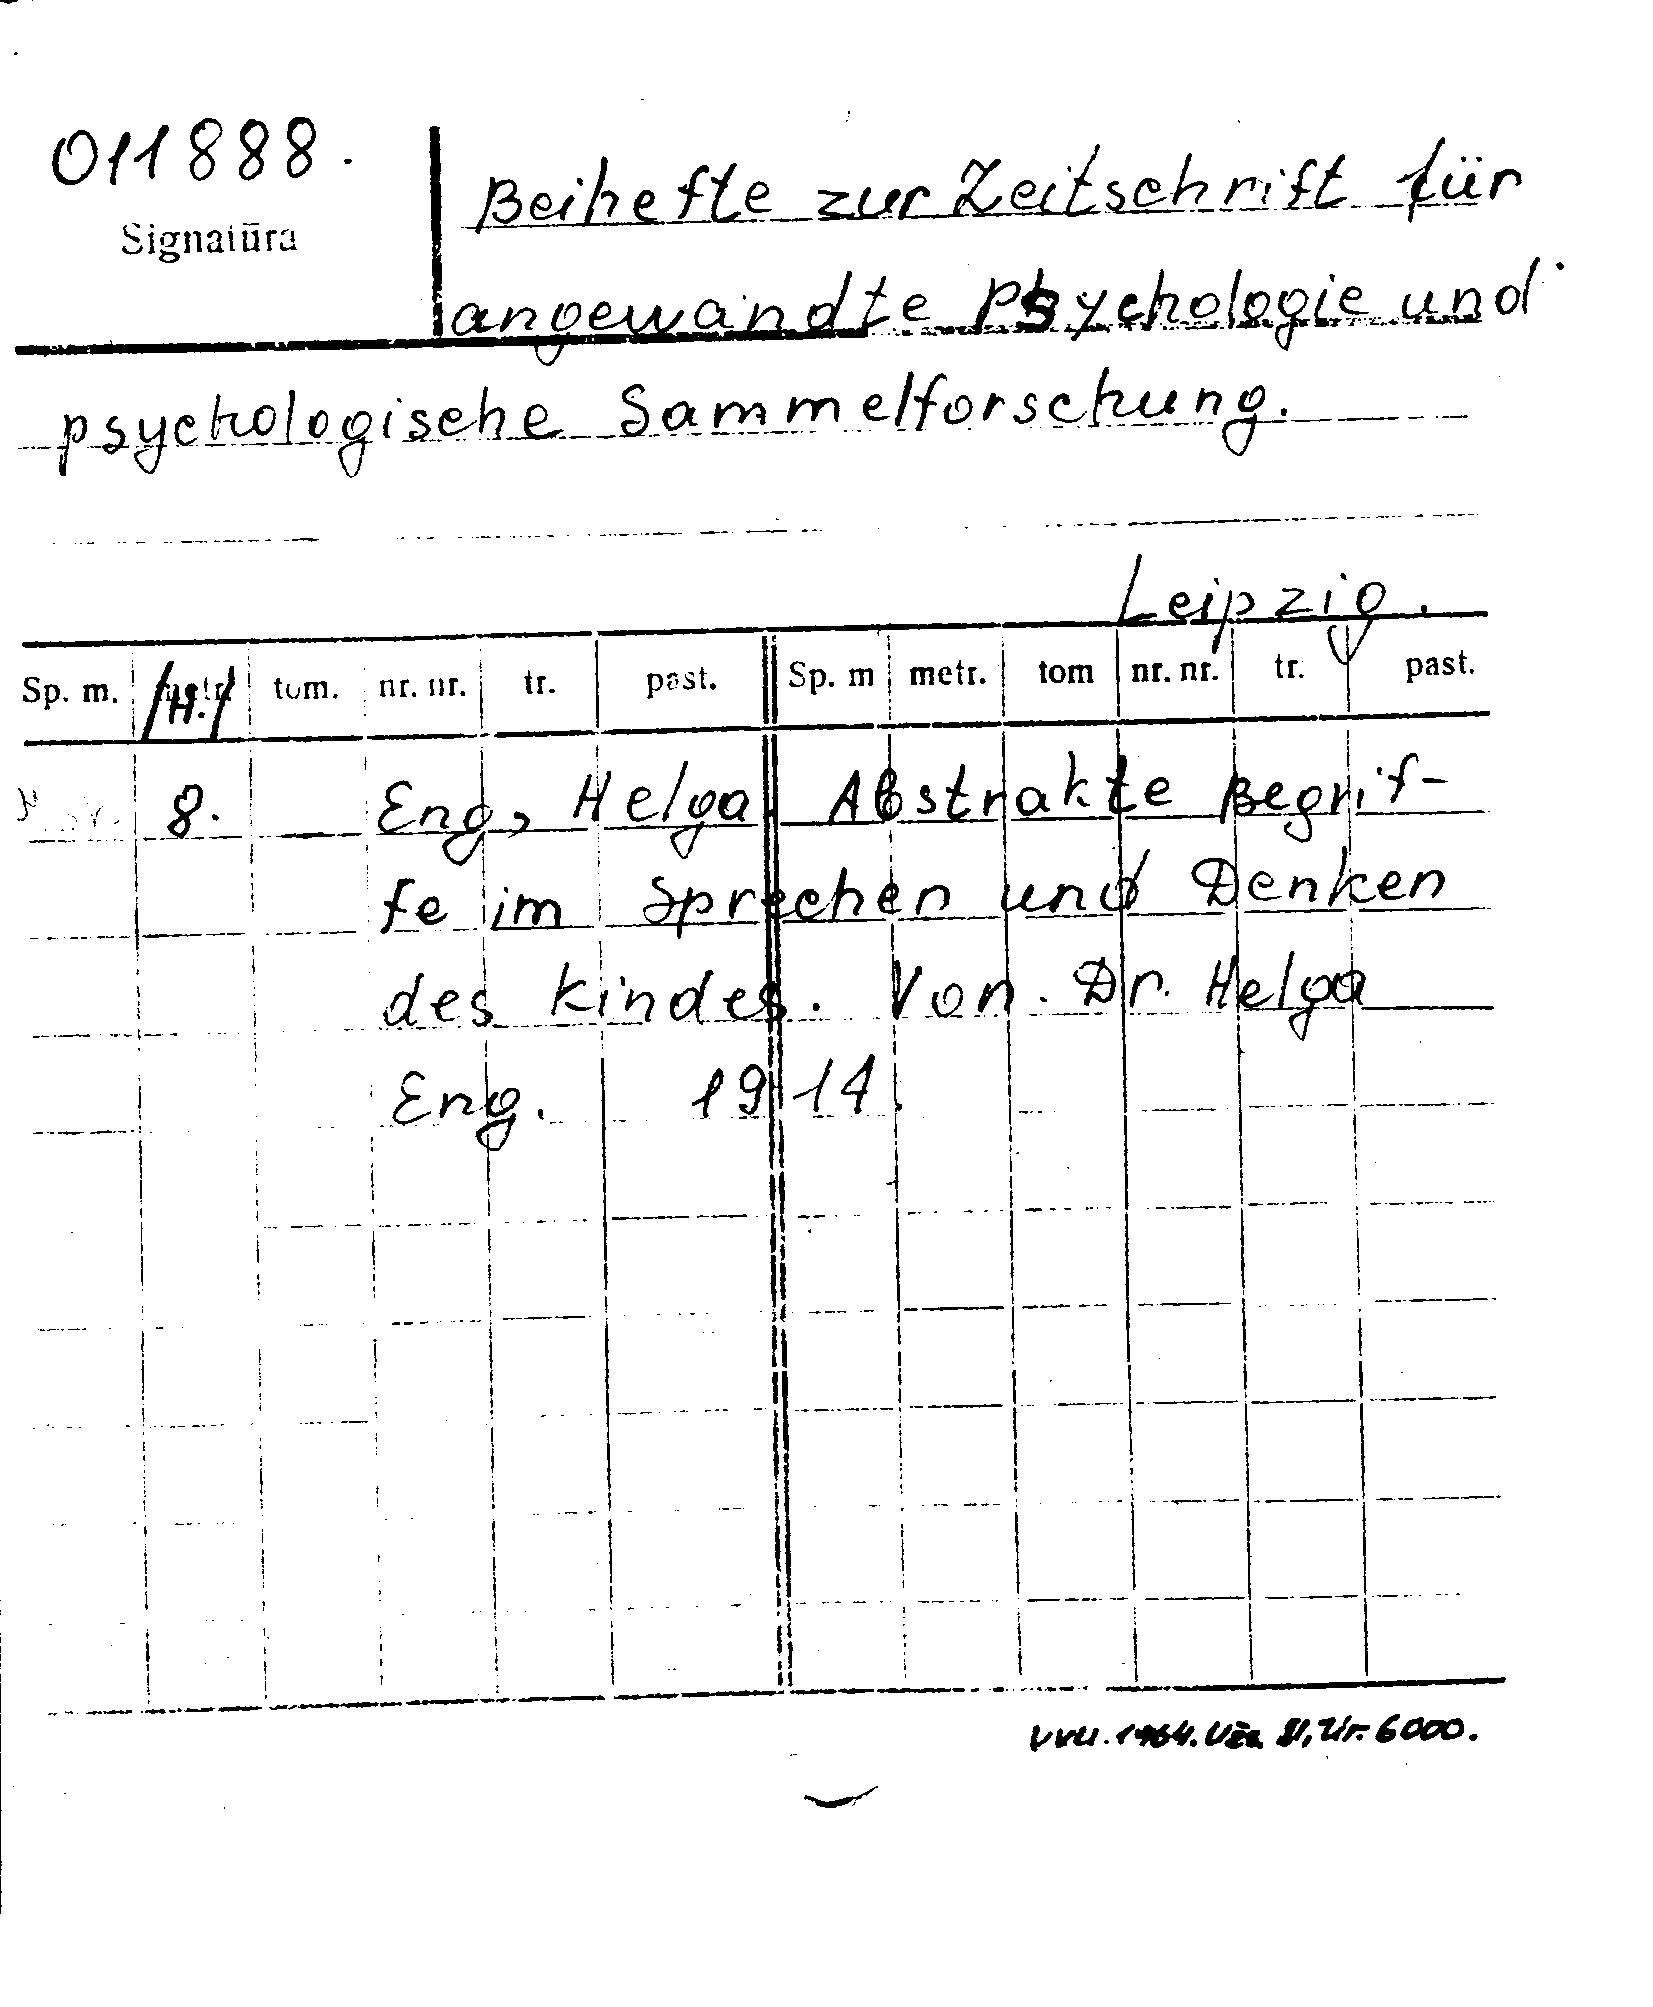 011888.
Signatūra
Beihefte zur Zeitschrift für
angewandte Psychologie und
psychologische Sammelforschung.
Leipzig.
Sp. m. /H./ tom. nr. nr. tr. past. Sp. m metr. tom nr. nr. tr. past.
8. Eng, Helga. Abstrakte Begrif-
fe im Sprechen und Denken
des Kindes. Von. Dr. Helga
Eng. 1914.
VVU. 1964. Užs. 81, Tir. 6000.